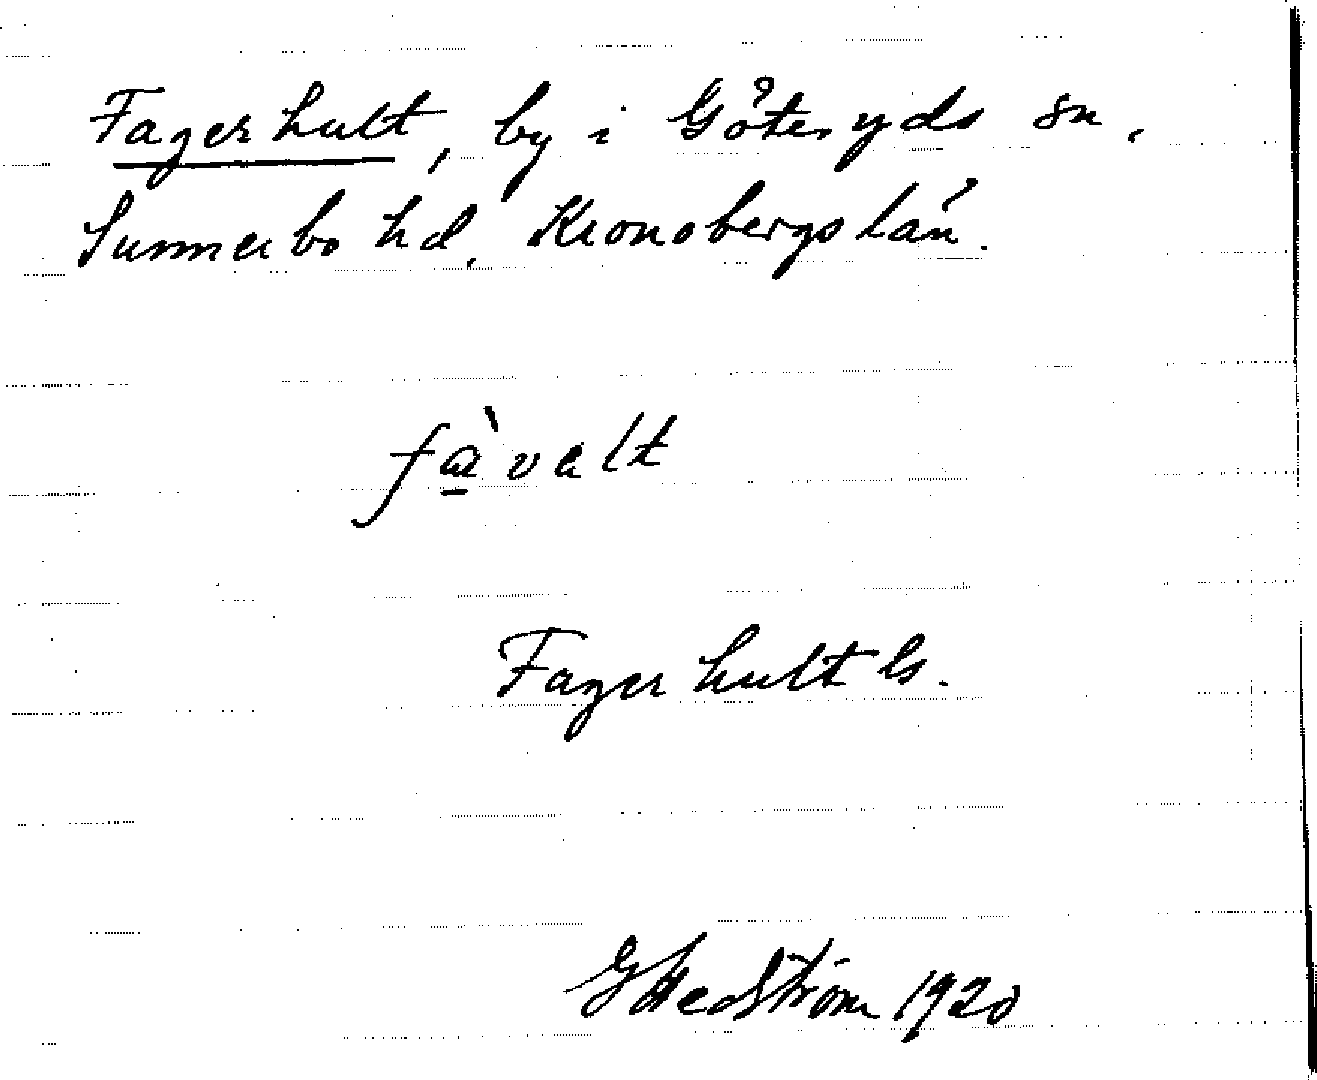 Fagerhult, by i Göteryds sn,
Sunnerbo hd, Kronobergs län.
fàvalt
Fagerhult ls.
G Hedström 1920